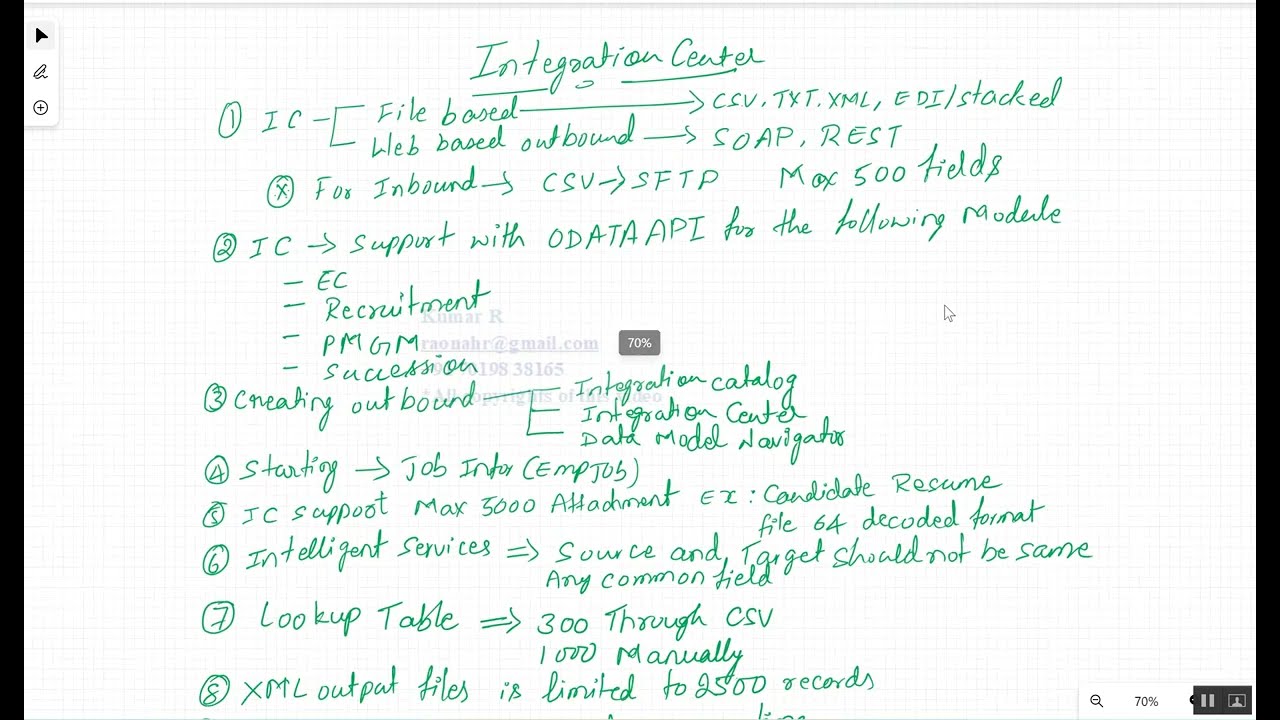 Integration Center
① IC - File based → CSV, TXT, XML, EDI/stacked
Web based outbound → SOAP, REST
ⓧ For Inbound → CSV → SFTP Max 500 fields
② IC → support with ODATA API for the following Module
- EC
- Recruitment
Kumar R
- PMGM
raonahr@gmail.com
70%
- Succession
198 38165
③ Creating outbound - Integration catalog
*All copyrights of this video
Integration Center
Data Model Navigator
④ Starting → Job Infor (EmpJob)
⑤ IC support Max 5000 Attachment Ex: Candidate Resume
file 64 decoded format
⑥ Intelligent Services ⇒ Source and Target should not be same
Any common field
⑦ Lookup Table ⇒ 300 Through CSV
1000 Manually
⑧ XML output files is limited to 2500 records
70%